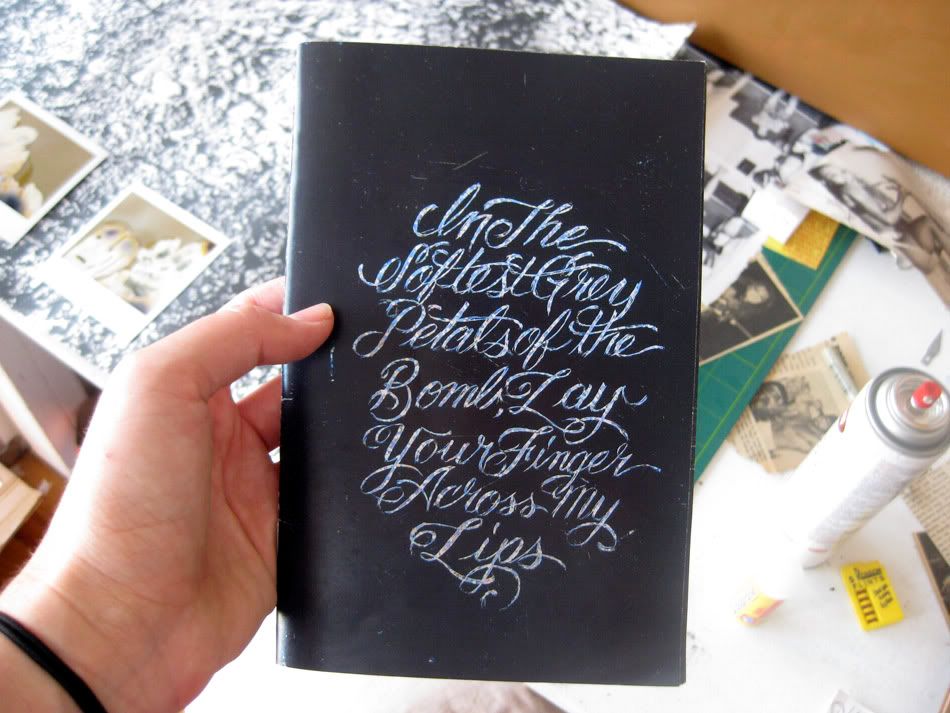 In The
Softest Grey
Petals of the
Bomb, Lay
Your Finger
Across My
Lips